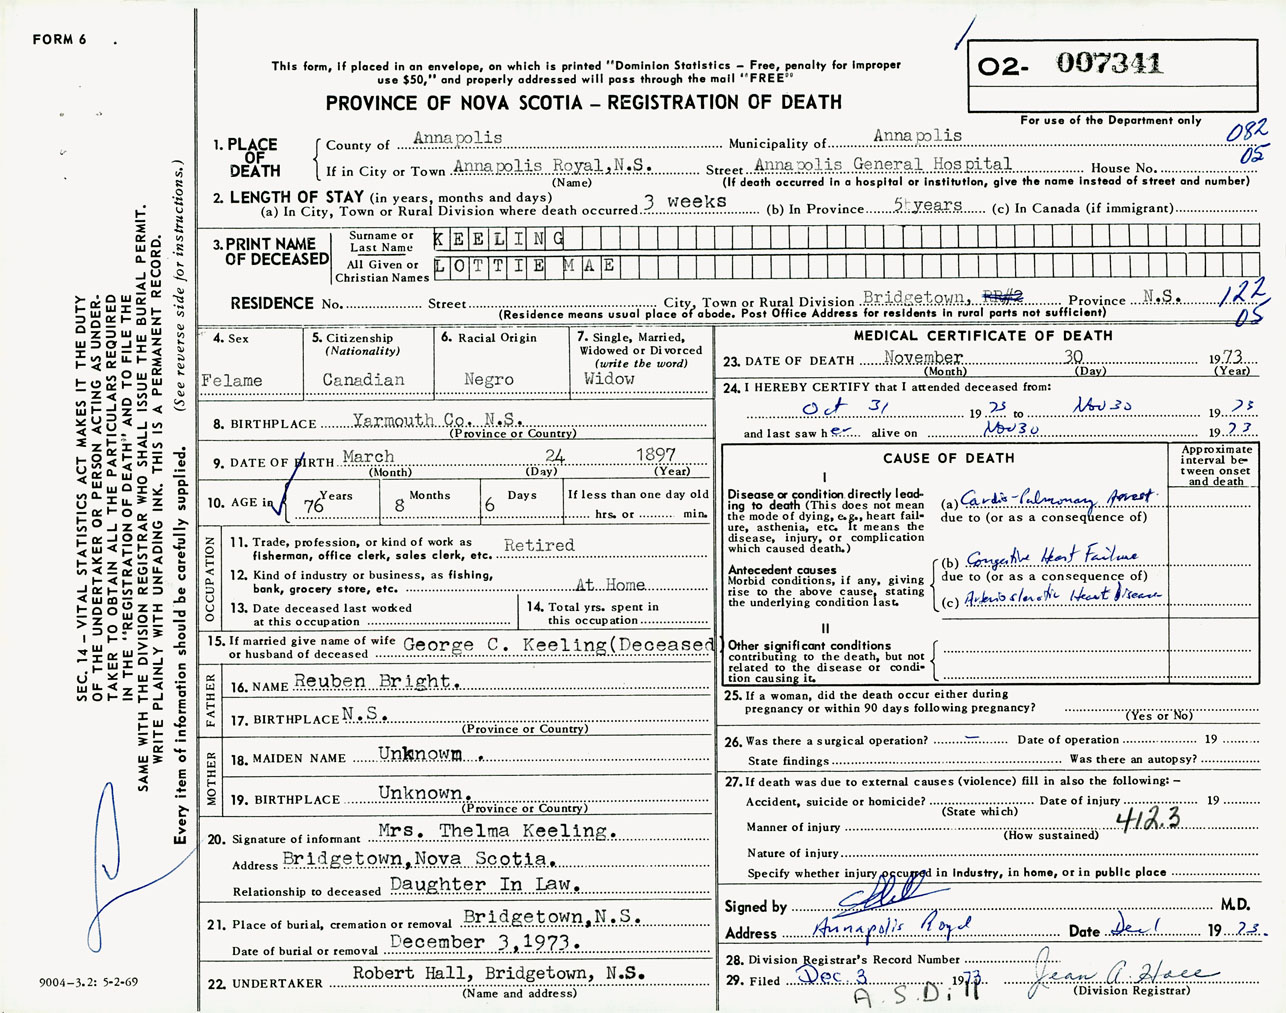 FORM 6
This form, if placed in an envelope, on which is printed "Dominion Statistics – Free, penalty for improper
use $50," and properly addressed will pass through the mail "FREE"
PROVINCE OF NOVA SCOTIA – REGISTRATION OF DEATH
O2- 007341
For use of the Department only
082
05
1. PLACE OF DEATH
County of Annapolis Municipality of Annapolis
If in City or Town Annapolis Royal,N.S. Street Annapolis General Hospital House No.
(Name) (If death occurred in a hospital or institution, give the name instead of street and number)
2. LENGTH OF STAY (in years, months and days)
(a) In City, Town or Rural Division where death occurred 3 weeks (b) In Province 5 years (c) In Canada (if immigrant)
3. PRINT NAME OF DECEASED
Surname or Last Name KEELING
All Given or Christian Names LOTTIE MAE
RESIDENCE No. Street City, Town or Rural Division Bridgetown, RR#2 Province N.S.
(Residence means usual place of abode. Post Office Address for residents in rural parts not sufficient)
122
05
4. Sex
Felame
5. Citizenship
(Nationality)
Canadian
6. Racial Origin
Negro
7. Single, Married,
Widowed or Divorced
(write the word)
Widow
8. BIRTHPLACE Yarmouth Co. N.S.
(Province or Country)
9. DATE OF BIRTH March 24 1897
(Month) (Day) (Year)
10. AGE in 76 Years 8 Months 6 Days If less than one day old
hrs. or min.
OCCUPATION
11. Trade, profession, or kind of work as
fisherman, office clerk, sales clerk, etc. Retired
12. Kind of industry or business, as fishing,
bank, grocery store, etc. At Home
13. Date deceased last worked
at this occupation
14. Total yrs. spent in
this occupation
15. If married give name of wife
or husband of deceased George C. Keeling(Deceased)
FATHER
16. NAME Reuben Bright.
17. BIRTHPLACE N.S.
(Province or Country)
MOTHER
18. MAIDEN NAME Unknown .
19. BIRTHPLACE Unknown.
(Province or Country)
20. Signature of informant Mrs. Thelma Keeling.
Address Bridgetown,Nova Scotia.
Relationship to deceased Daughter In Law.
21. Place of burial, cremation or removal Bridgetown,N.S.
Date of burial or removal December 3,1973.
22. UNDERTAKER Robert Hall, Bridgetown, N.S.
(Name and address)
MEDICAL CERTIFICATE OF DEATH
23. DATE OF DEATH November 30 1973
(Month) (Day) (Year)
24. I HEREBY CERTIFY that I attended deceased from:
Oct 31 1973 to Nov 30 1973
and last saw her alive on Nov 30 1973
CAUSE OF DEATH
Approximate
interval be-
tween onset
and death
I
Disease or condition directly lead-
ing to death (This does not mean
the mode of dying, e.g., heart fail-
ure, asthenia, etc. It means the
disease, injury, or complication
which caused death.)
(a) Cardio-Pulmonary Arrest
due to (or as a consequence of)
Antecedent causes
Morbid conditions, if any, giving
rise to the above cause, stating
the underlying condition last.
(b) Congestive Heart Failure
due to (or as a consequence of)
(c) Arteriosclerotic Heart Disease
II
Other significant conditions
contributing to the death, but not
related to the disease or condi-
tion causing it.
25. If a woman, did the death occur either during
pregnancy or within 90 days following pregnancy?
(Yes or No)
26. Was there a surgical operation? – Date of operation 19
State findings Was there an autopsy?
27. If death was due to external causes (violence) fill in also the following: –
Accident, suicide or homicide? Date of injury 19
(State which)
Manner of injury 412.3
(How sustained)
Nature of injury
Specify whether injury occurred in Industry, in home, or in public place
Signed by M.D.
Address Annapolis Royal Date Dec 1 1973.
28. Division Registrar's Record Number
29. Filed Dec. 3 1973
(Division Registrar)
A.S.Dill
SEC. 14 – VITAL STATISTICS ACT MAKES IT THE DUTY
OF THE UNDERTAKER OR PERSON ACTING AS UNDER-
TAKER TO OBTAIN ALL THE PARTICULARS REQUIRED
IN THE "REGISTRATION OF DEATH" AND TO FILE THE
SAME WITH THE DIVISION REGISTRAR WHO SHALL ISSUE THE BURIAL PERMIT.
WRITE PLAINLY WITH UNFADING INK. THIS IS A PERMANENT RECORD.
Every item of information should be carefully supplied. (See reverse side for instructions.)
9004-3.2: 5-2-69